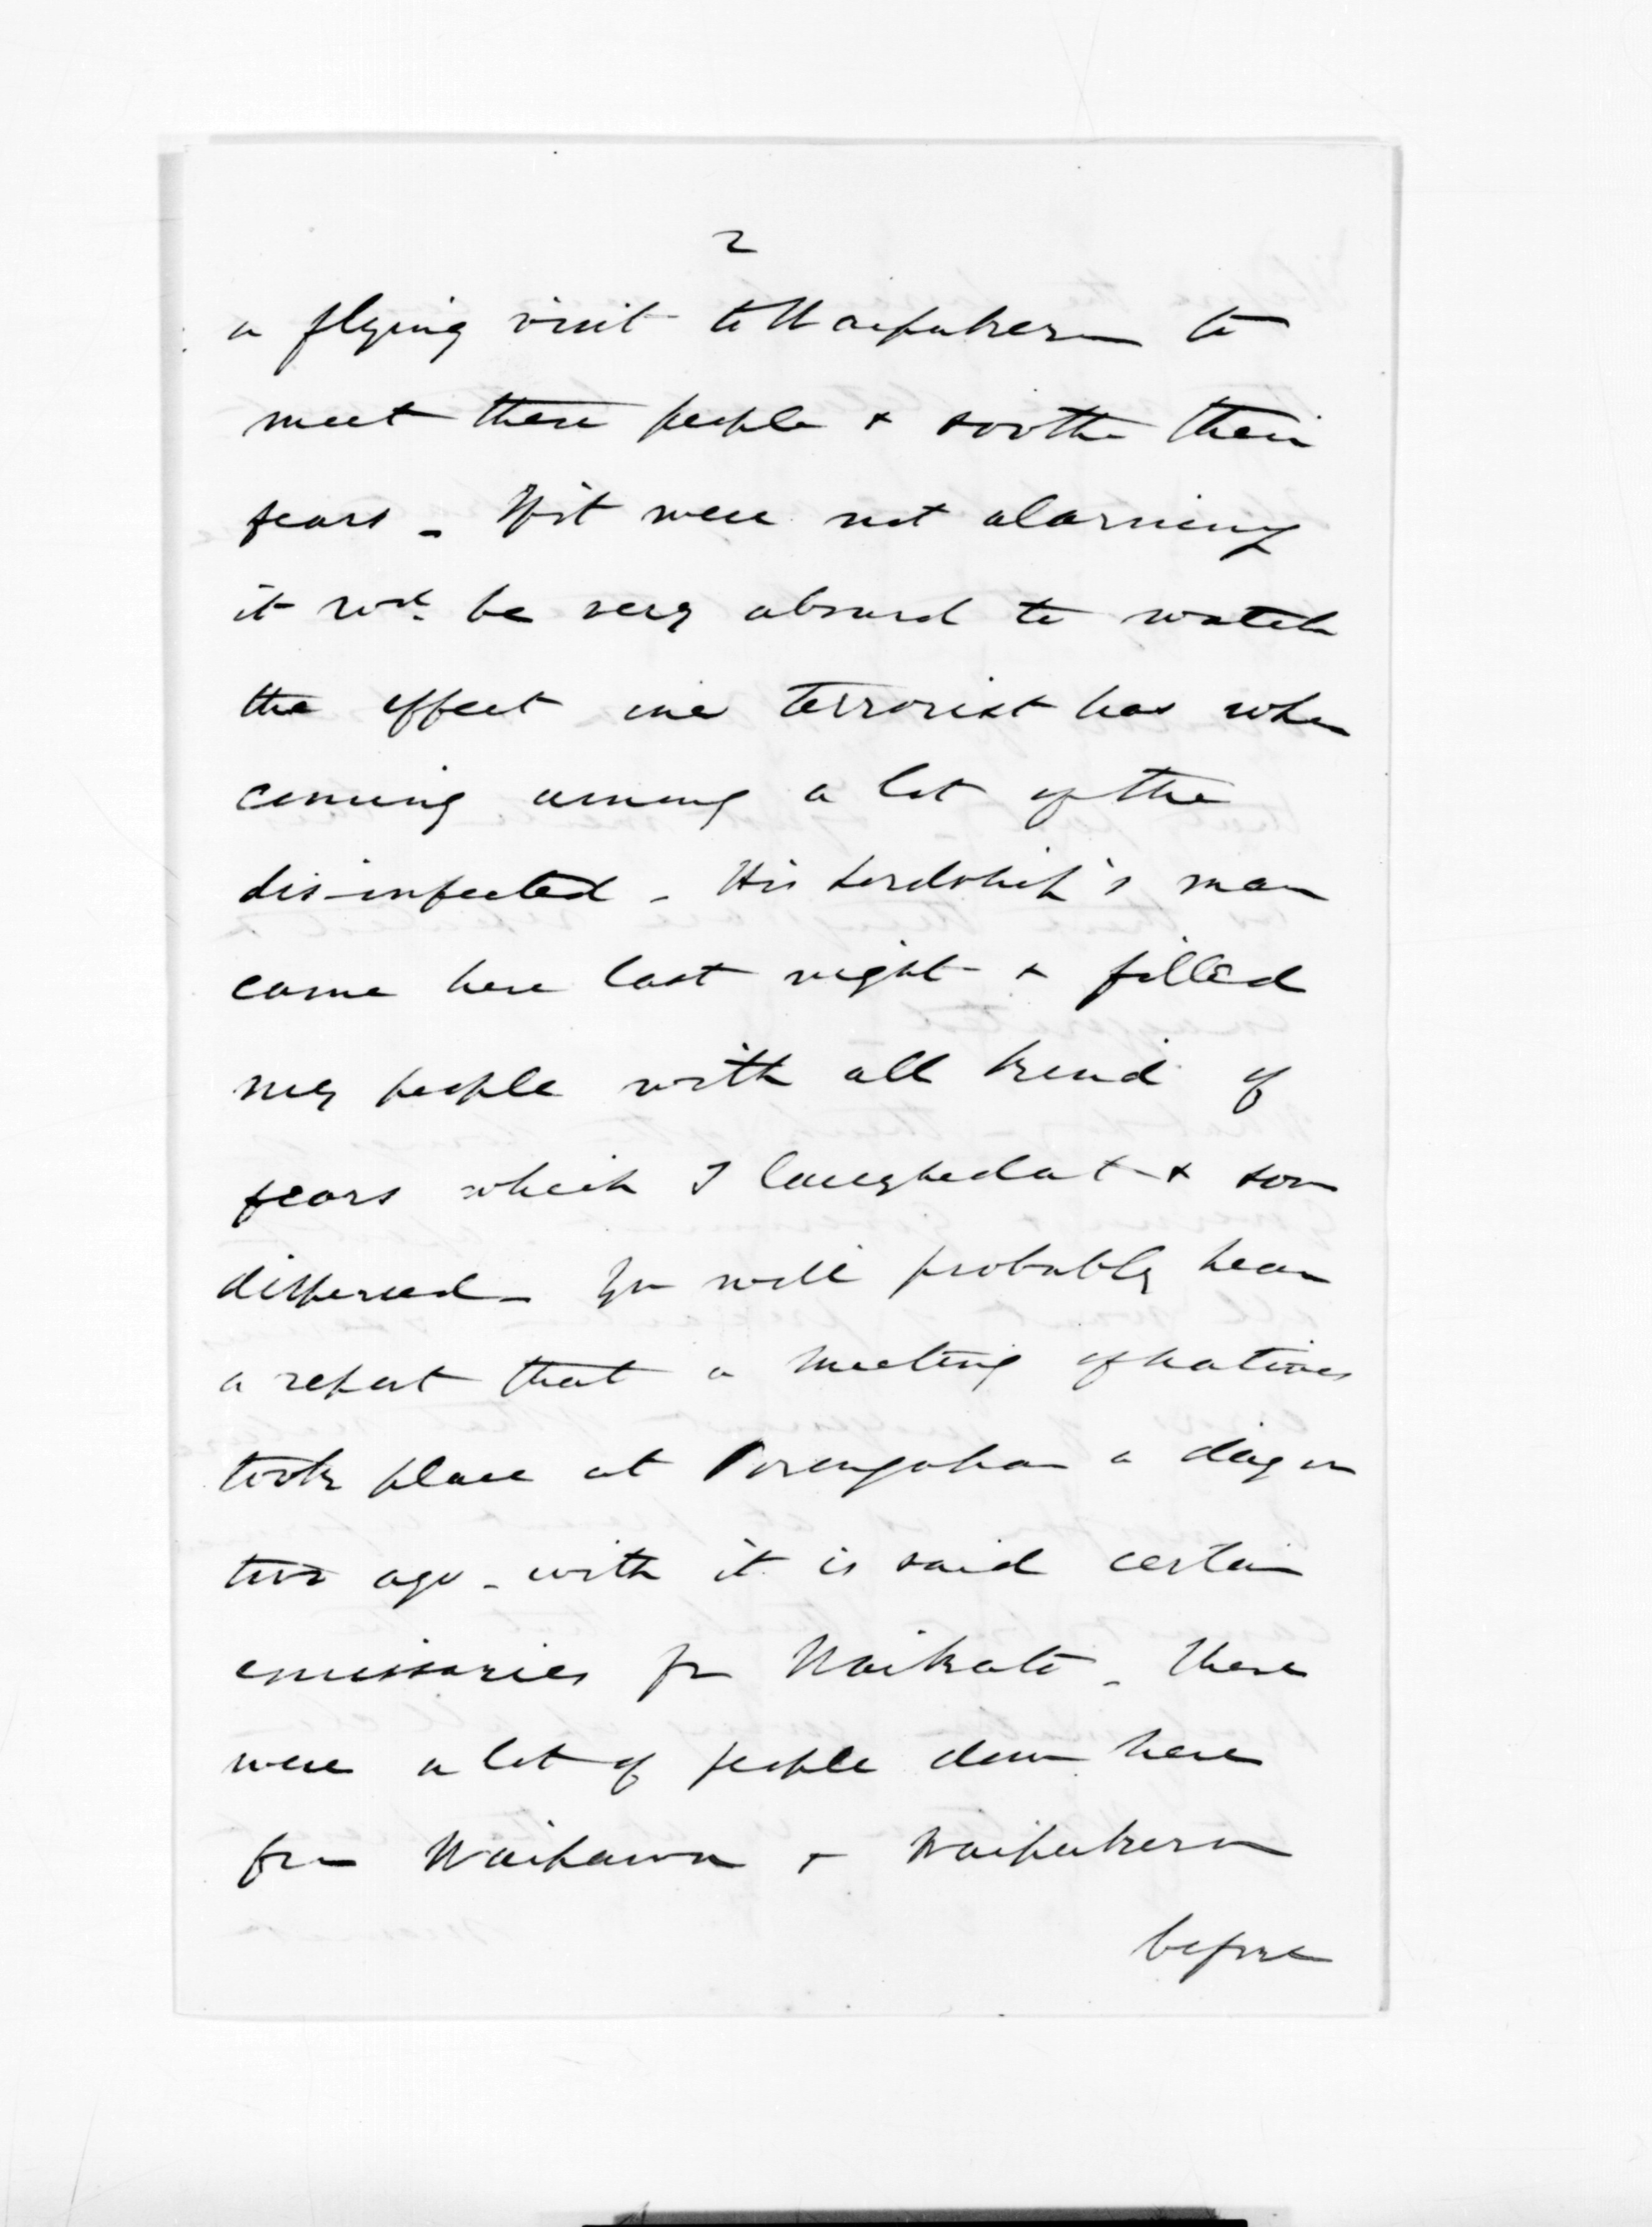 2
a flying visit to Waipukerau to
meet these people & soothe their
fears - If it were not alarming
it wod. be very absurd to watch
the effect one terrorist has when
coming among a lot of the
dis-infected - His Lordship's man
came here last night & filled
my people with all kind of
fears which I laughed at & soon
dispersed - You will probably hear
a report that a meeting of natives
took place at Porongahau a day or
two ago - with it is said certain
emissaries fm Waikato - There
were a lot of people down here
from Waipawa & Waipukerau
before